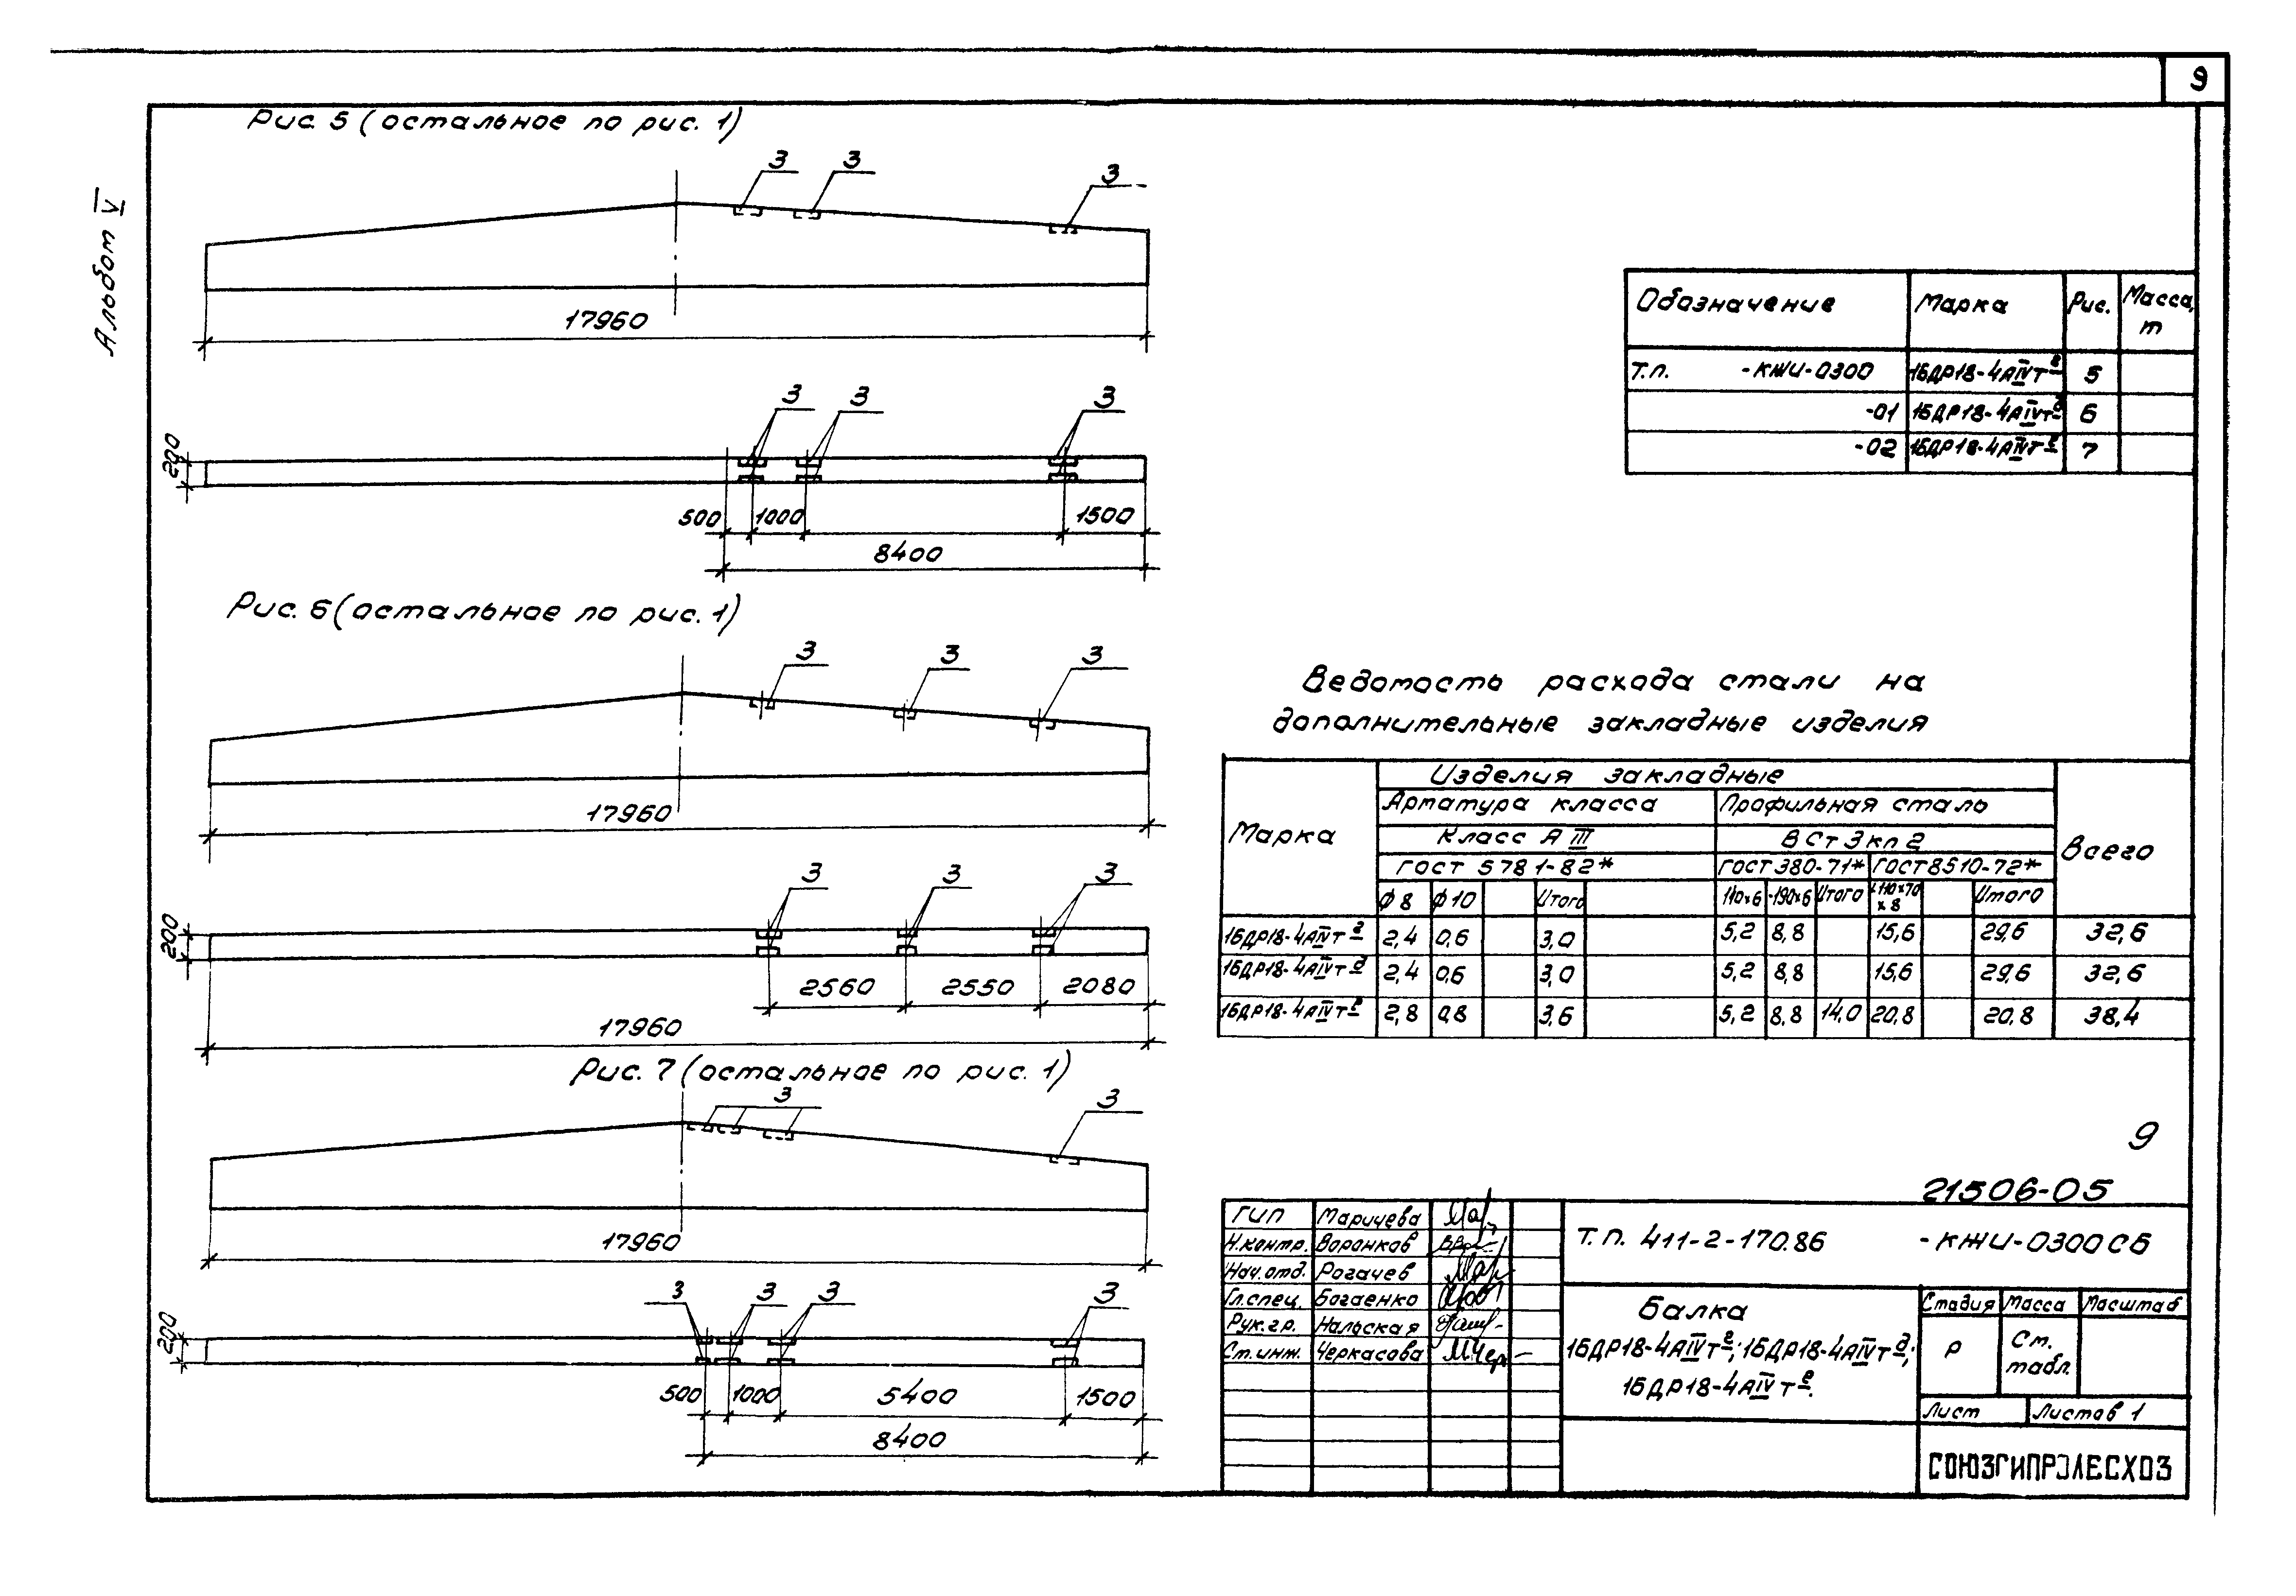 9
Альбом V
Рис. 5 (остальное по рис. 1)
3 3 3
17960
3 3 3
200
500 1000 1500
8400
Рис. 6 (остальное по рис. 1)
3 3 3
17960
3 3 3
200
2560 2550 2080
17960
Рис. 7 (остальное по рис. 1)
3 3
17960
3 3 3 3
200
500 1000 5400 1500
8400
Обозначение Марка Рис. Масса, т
Т.п. -КЖИ-0300 1БДР18-4АIVт 5
-01 1БДР18-4АIVт д 6
-02 1БДР18-4АIVт е 7
Ведомость расхода стали на
дополнительные закладные изделия
Марка Изделия закладные Всего
Арматура класса Профильная сталь
Класс А III ВСт3кп2
ГОСТ 5781-82* ГОСТ 380-71* ГОСТ 8510-72*
ф8 ф10 Итого 140х6 -190х6 Итого L110х70х8 Итого
1БДР18-4АIVт 2,4 0,6 3,0 5,2 8,8 15,6 29,6 32,6
1БДР18-4АIVт д 2,4 0,6 3,0 5,2 8,8 15,6 29,6 32,6
1БДР18-4АIVт е 2,8 0,8 3,6 5,2 8,8 14,0 20,8 20,8 38,4
9
21506-05
ГИП Маричева
Н.контр. Воронков
Нач.отд. Рогачев
Гл.спец. Богаенко
Рук.гр. Нальская
Ст.инж. Черкасова
Т.п. 411-2-170.86 -КЖИ-0300СБ
Балка
1БДР18-4АIVт г; 1БДР18-4АIVт д;
1БДР18-4АIVт е.
Стадия Масса Масштаб
Р См. табл.
Лист Листов 1
СОЮЗГИПРОЛЕСХОЗ